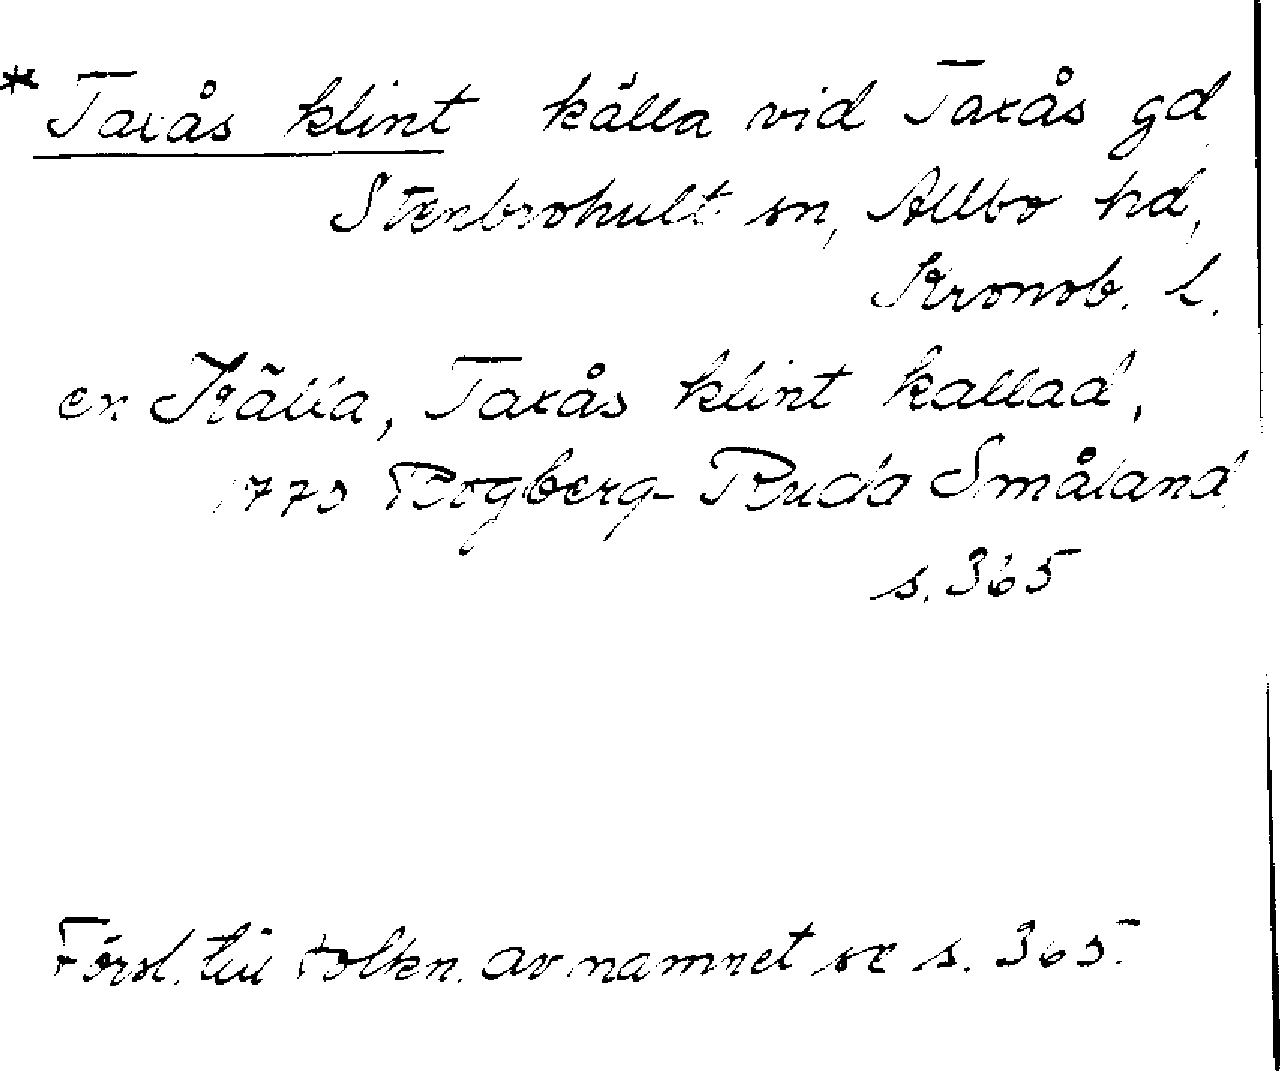 * Taxås klint källa vid Taxås gd
Stenbrohult sn, Allbo hd,
Kronob. l.
en Källa, Taxås klint kallad,
1770 Rogberg-Ruda Småland
s. 365
Försl. till tolkn. av namnet se s. 365.